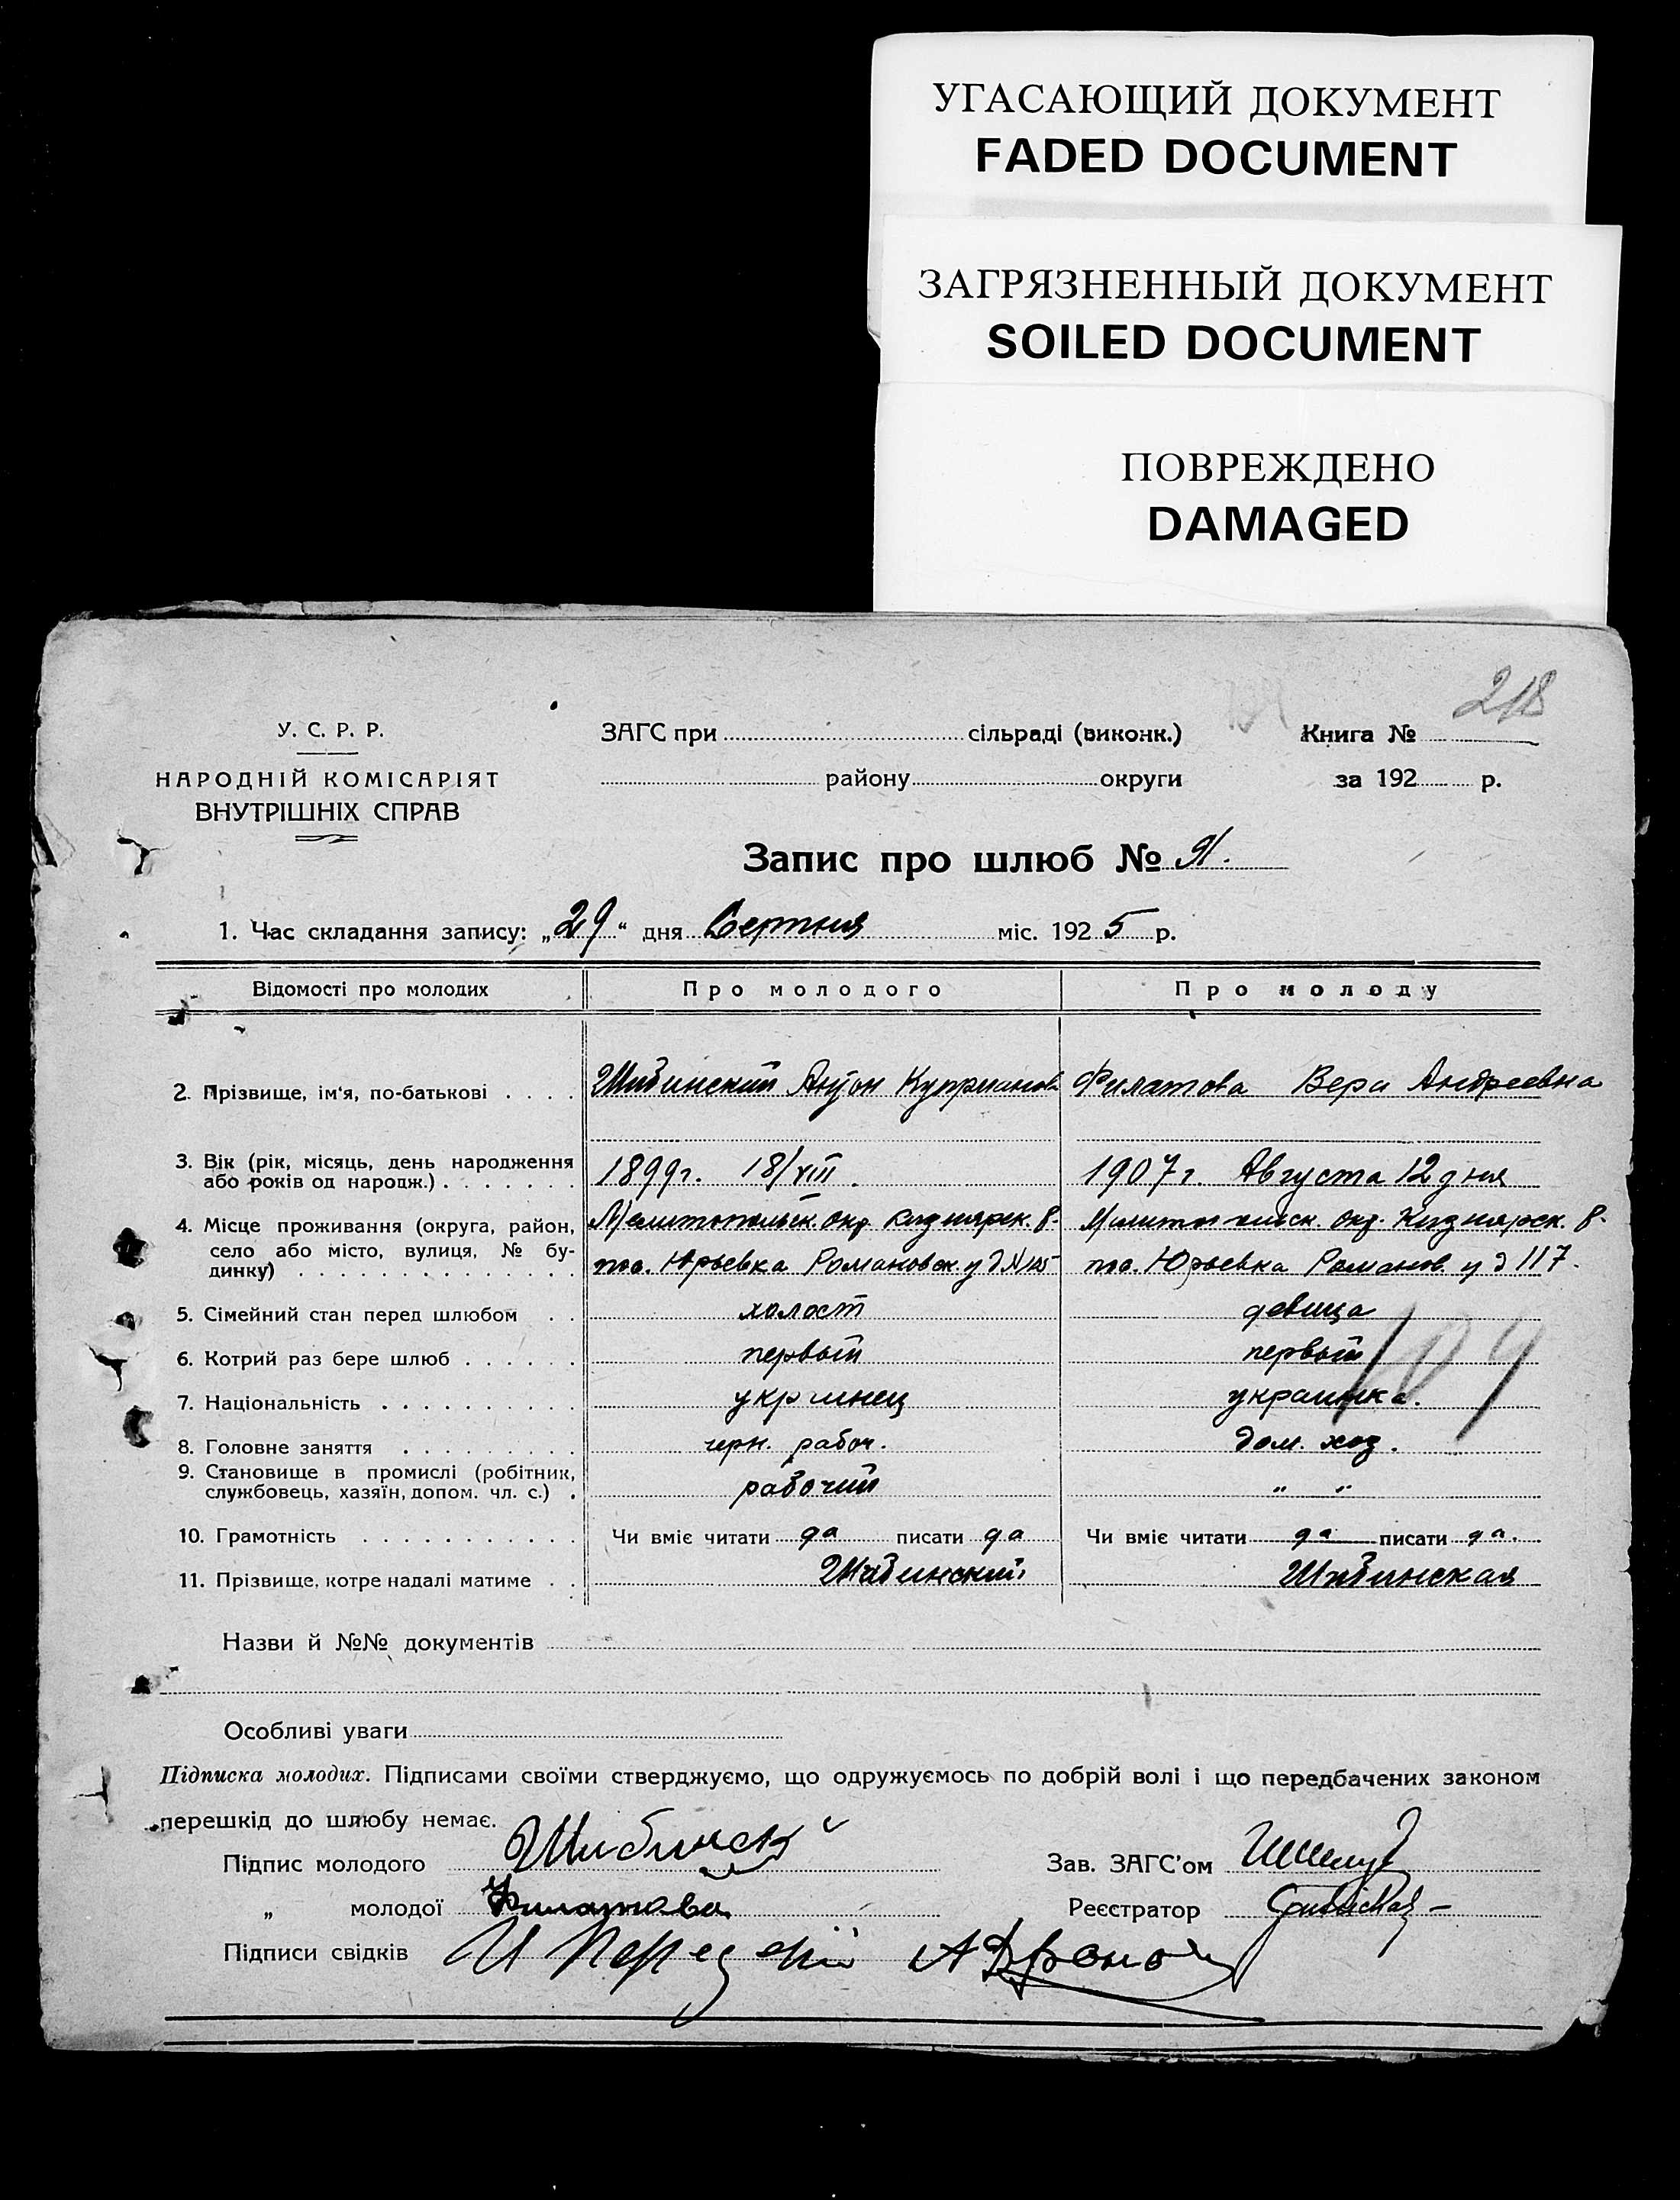 УГАСАЮЩИЙ ДОКУМЕНТ
FADED DOCUMENT
ЗАГРЯЗНЕННЫЙ ДОКУМЕНТ
SOILED DOCUMENT
ПОВРЕЖДЕНО
DAMAGED
218
У. С. Р. Р.
НАРОДНІЙ КОМІСАРІЯТ
ВНУТРІШНІХ СПРАВ
ЗАГС при сільраді (виконк.)
району округи
Книга №
за 192 р.
Запис про шлюб № 91.
1. Час складання запису: „29“ дня Серпня міс. 1925 р.
Відомості про молодих Про молодого Про молоду
2. Прізвище, ім'я, по-батькові Шибинский Антон Куприанов Филатова Вера Андреевна
3. Вік (рік, місяць, день народження або років од народж.) 1899г. 18/VIII. 1907г. Августа 12 дня
4. Місце проживання (округа, район, Мелитопольск. окр. Кизиярск. р. Мелитопольск. окр. Кизиярск. р.
село або місто, вулиця, № бу-
динку) пос. Юрьевка Романовск. у д № пос. Юрьевка Романов. у д 117.
5. Сімейний стан перед шлюбом холост девица
6. Котрий раз бере шлюб первый первый
109
7. Національність украинец украинка.
8. Головне заняття черн. рабоч. дом. хоз.
9. Становище в промислі (робітник,
службовець, хазяїн, допом. чл. с.) рабочий „ „
10. Грамотність Чи вміє читати да писати да Чи вміє читати да писати да.
11. Прізвище, котре надалі матиме Шибинский Шибинская
Назви й №№ документів
Особливі уваги
Підписка молодих. Підписами своїми стверджуємо, що одружуємось по добрій волі і що передбачених законом
перешкід до шлюбу немає.
Підпис молодого Шибинск Зав. ЗАГС'ом
„ молодої Филатова Реєстратор
Підписи свідків